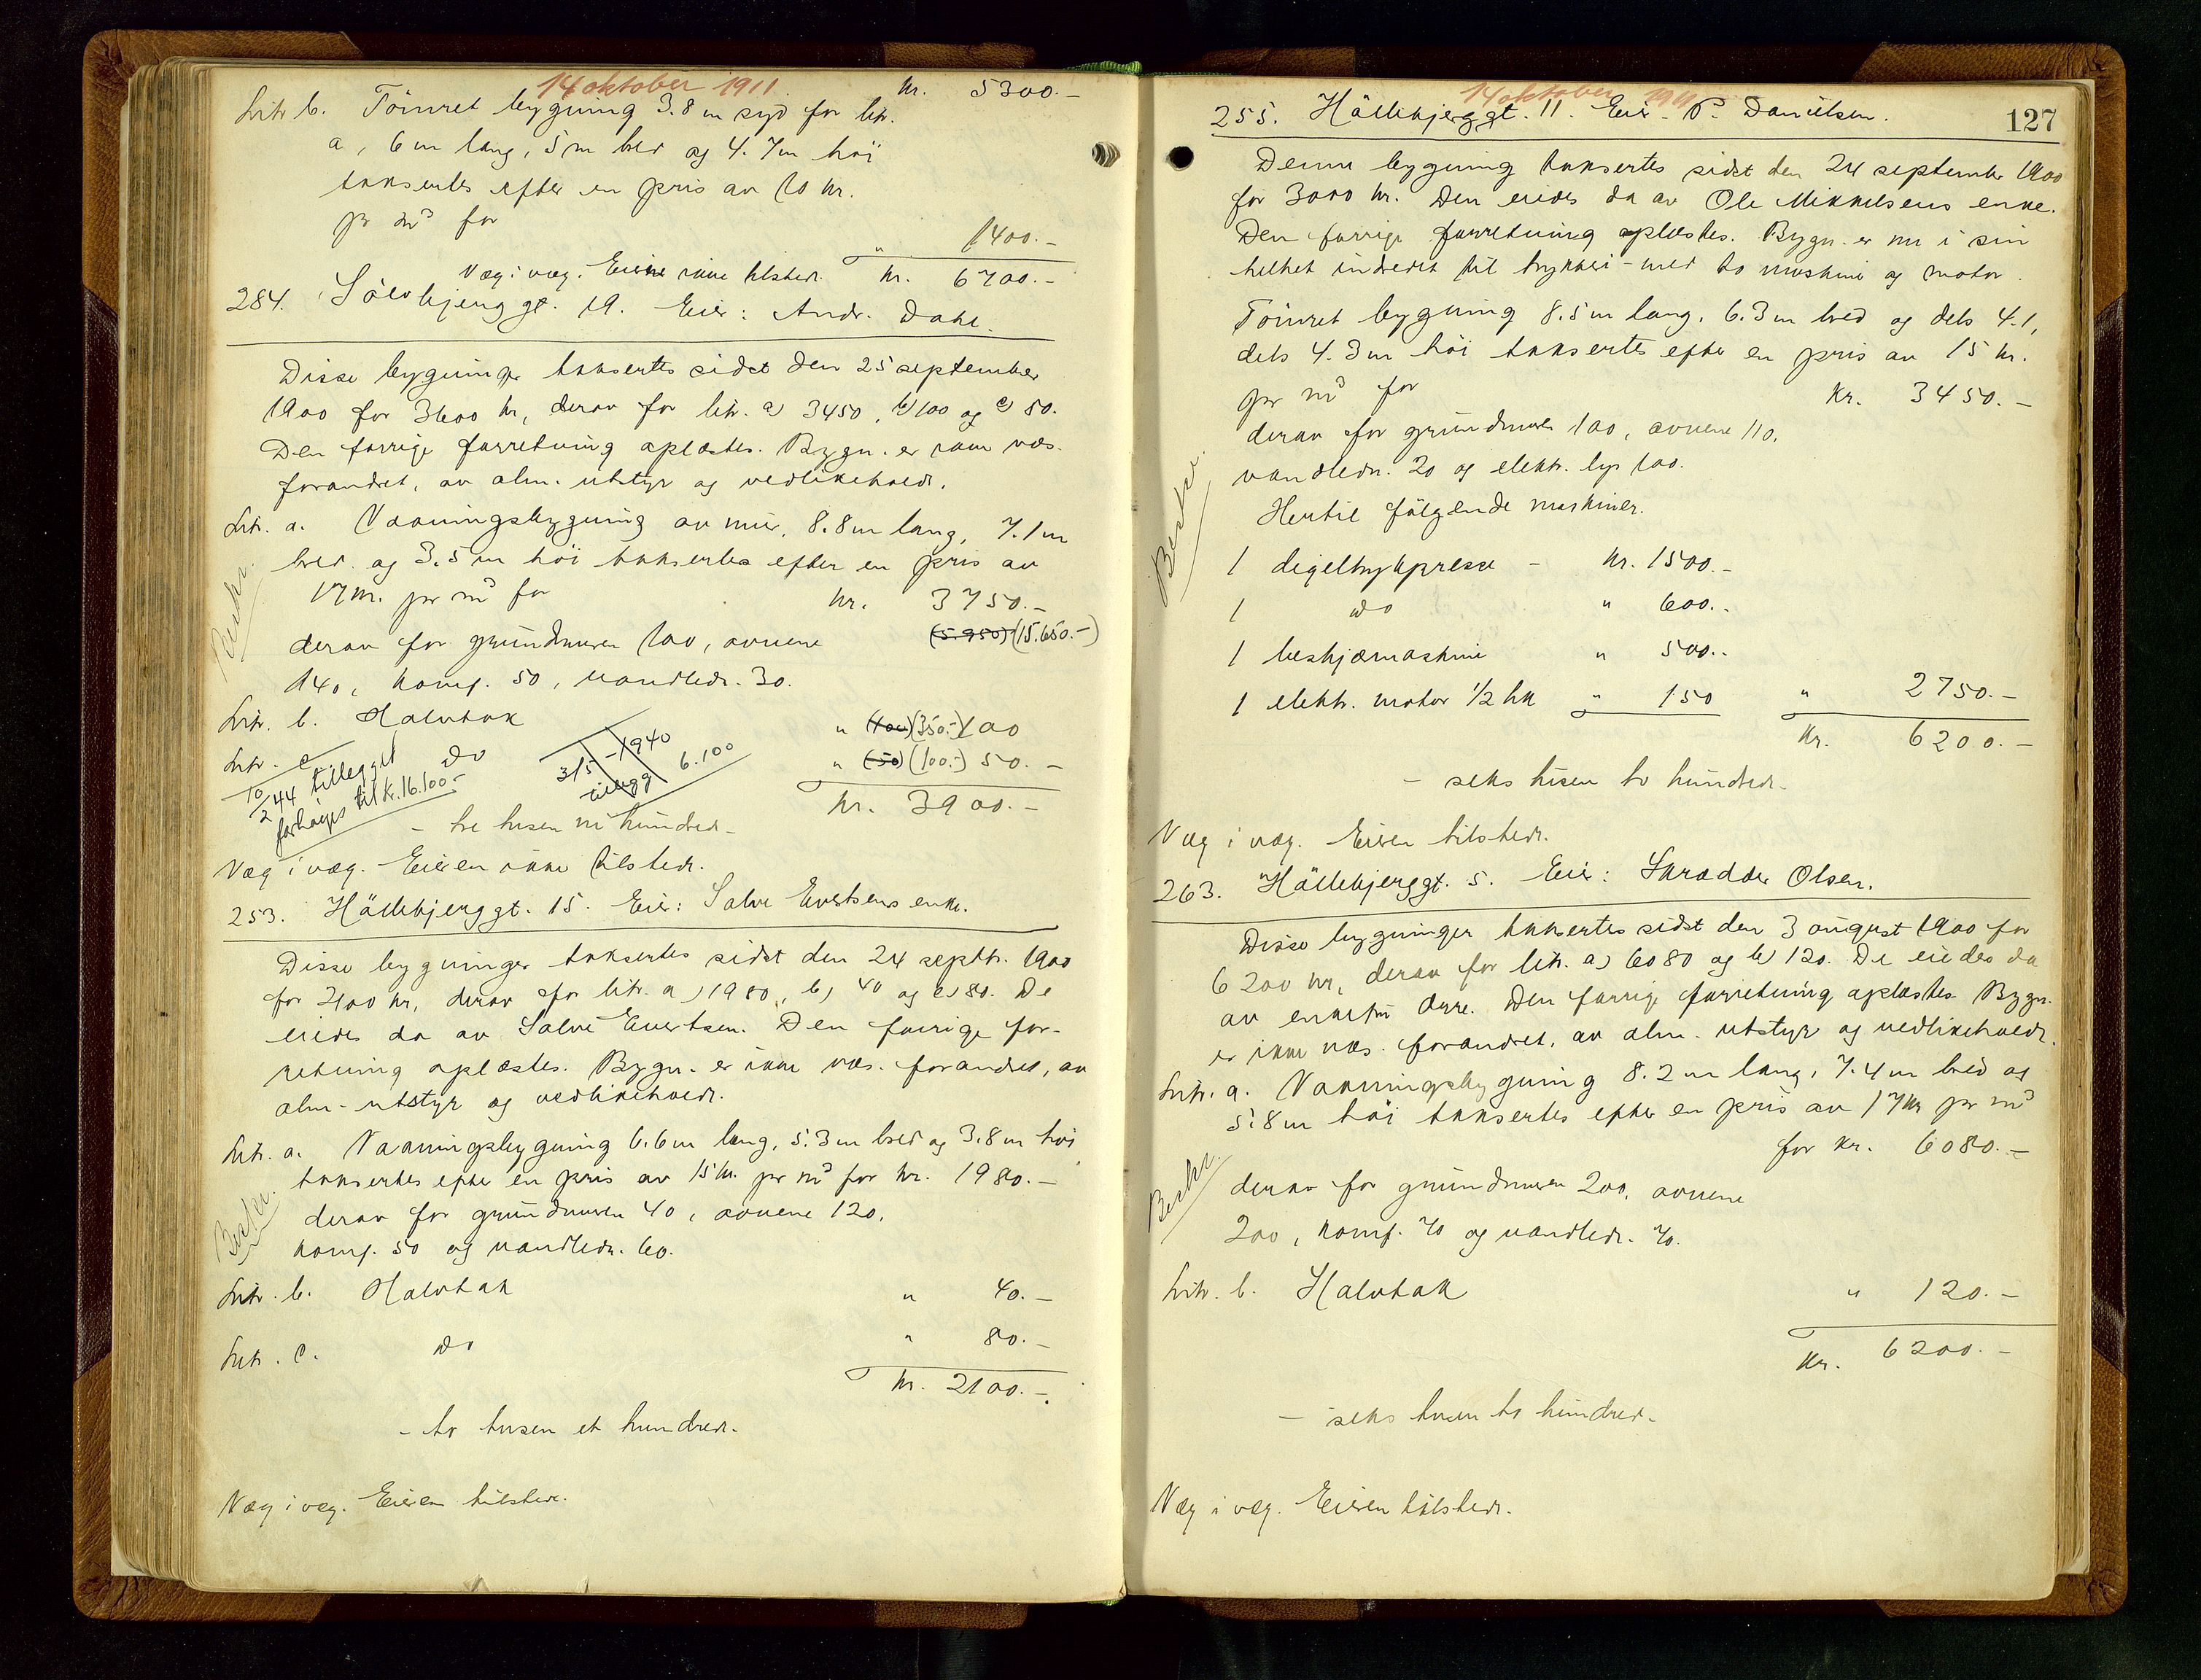 14 oktober 1911
kr. 5300.-
Litr b. Tömret bygning 3.8 m syd for litr.
a, 6 m lang, 5 m bred og 4.7 m höi
taksertes efter en pris av 10 kr.
pr m³ for
" 1400.-
Væg i væg. Eieren ikke tilstede. kr. 6700.-
284. Sölvbjerggt. 19. Eier: Andr. Dahl.
Disse bygninger taksertes sidst den 25 september
1900 for 3600 kr, derav for litr. a) 3450, b) 100 og c) 50.
Den forrige forretning oplæstes. Bygn. er ikke væs.
forandret, av alm. utstyr og vedlikehold.
Litr. a. Vaaningsbygning av mur, 8.8 m lang, 7.1 m
bred og 3.5 m höi taksertes efter en pris av
17 kr. pr m³ for kr. 3750.-
derav for grundmuren 100, ovnene (5.950) (15.650.-)
140, komf. 50, vandledn. 30.
Beskr.
Litr. b. Halvtak " (400) (350.-) 100
Litr. c do " (50) (100.-) 50.-
10/2 44 tillegget
forhöyes til kr. 16.100.-
31/5 - 1940
tillegg 6.100
kr. 3900.-
- tre tusen ni hundred -
Væg i væg. Eieren ikke tilstede.
253. Hällebjerggt. 15. Eier: Salve Evertsens enke.
Disse bygninger taksertes sidst den 24 septbr. 1900
for 2100 kr, derav for litr. a) 1980, b) 40 og c) 80. De
eiedes da av Salve Evertsen. Den forrige for-
retning oplæstes. Bygn. er ikke væs. forandret, av
alm. utstyr og vedlikehold.
Litr. a. Vaaningsbygning 6.6 m lang, 5.3 m bred og 3.8 m höi
taksertes efter en pris av 15 kr. pr m³ for kr. 1980.-
derav for grundmuren 40, ovnene 120,
komf. 50 og vandledn. 60.
Beskr.
Litr. b. Halvtak " 40.-
Litr. c. do " 80.-
kr. 2100.-
- to tusen et hundred -
Væg i væg. Eieren tilstede.
14 oktober 1911
127
255. Hällebjerggt. 11. Eier P. Danielsen.
Denne bygning taksertes sidst den 24 september 1900
for 3000 kr. Den eiedes da av Ole Mikkelsens enke.
Den forrige forretning oplæstes. Bygn. er nu i sin
helhet indredet til trykkeri med to maskine og motor.
Tömret bygning 8.5 m lang, 6.3 m bred og dels 4.1,
dels 4.3 m höi taksertes efter en pris av 15 kr.
pr m³ for Kr. 3450.-
derav for grundmuren 100, ovnene 110,
vandledn. 20 og elektr. lys 100.
Beskr.
Hertil fölgende maskiner.
1 digeltrykpresse - kr. 1500.-
1 do " 600.-
1 beskjæmaskine " 500.-
1 elektr. motor 1/2 hk " 150 " 2750.-
Kr. 6200.-
- seks tusen to hundred -
Væg i væg. Eieren tilstede.
263. Hällebjerggt. 5. Eier: Skrædder Olsen.
Disse bygninger taksertes sidst den 3 august 1900 for
6200 kr, derav for litr. a) 6080 og b) 120. De eiedes da
av enkefru. Den forrige forretning oplæstes. Bygn.
er ikke væs. forandret, av alm. utstyr og vedlikehold.
Litr. a. Vaaningsbygning 8.2 m lang, 7.4 m bred og
5.8 m höi taksertes efter en pris av 17 kr pr m³
for Kr. 6080.-
derav for grundmuren 200, ovnene
200, komf. 70 og vandledn. 70.
Beskr.
Litr. b. Halvtak " 120.-
Kr. 6200.-
- seks tusen to hundred -
Væg i væg. Eieren tilstede.